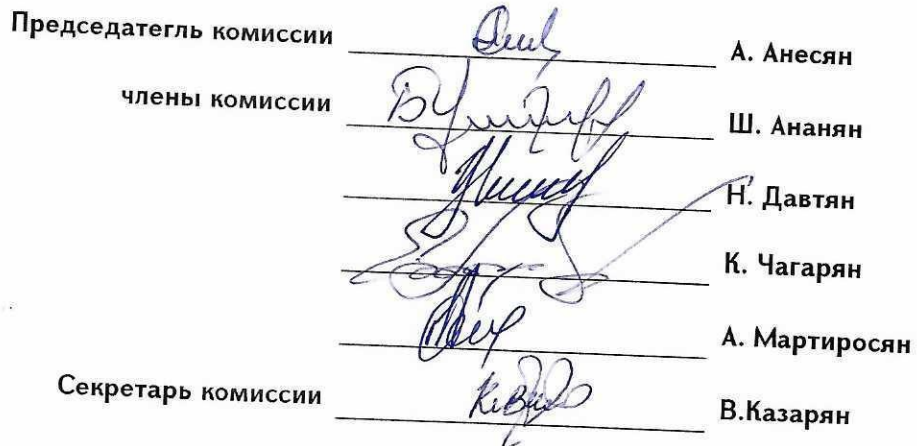 Председатегль комиссии А. Анесян
члены комиссии Ш. Ананян
Н. Давтян
К. Чагарян
А. Мартиросян
Секретарь комиссии В.Казарян